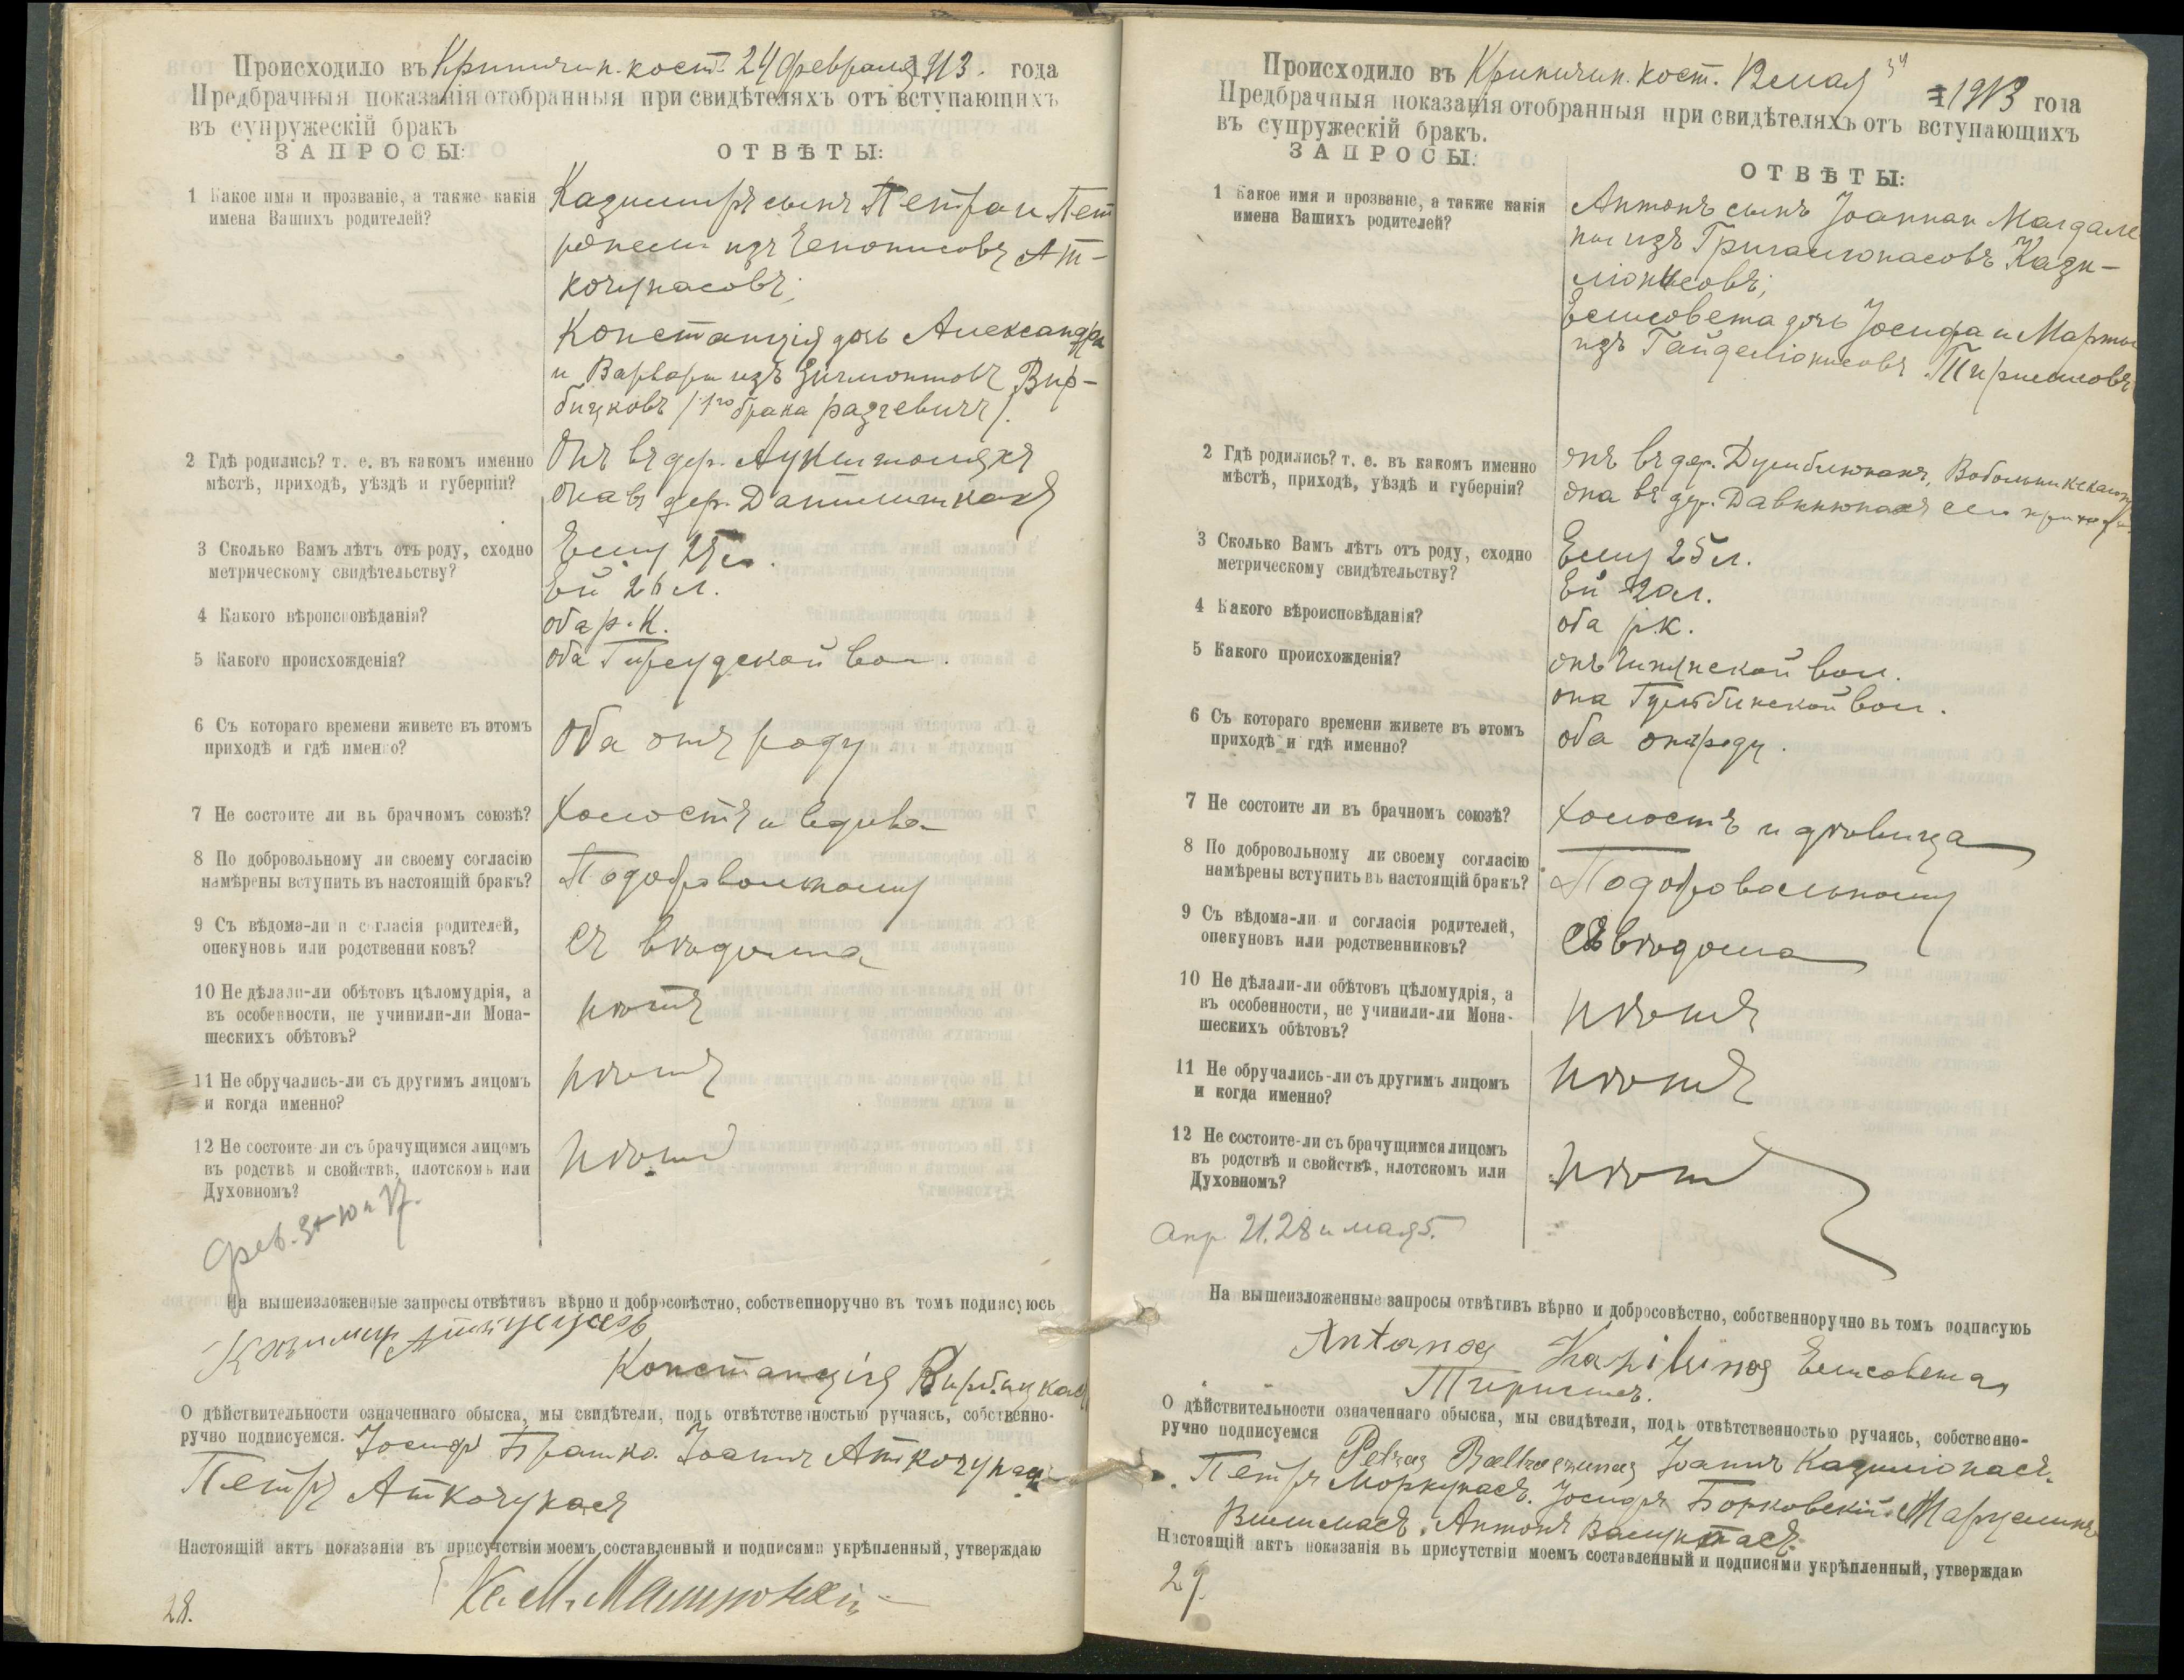 Происходило въ Криничин. кост. 24 февраля 1913. года
Предбрачныя показанія отобранныя при свидѣтеляхъ отъ вступающихъ
въ супружескій бракъ
ЗАПРОСЫ:
ОТВѢТЫ:
1 Какое имя и прозваніе, а также какія
имена Вашихъ родителей?
Казимиръ сынъ Петра и Пет
ронели изъ Ченописовъ Ат-
кочунасовъ;
Констанція дочь Александра
и Варвары изъ Гирмонтовъ Вир-
бицковъ /1го брака
2 Гдѣ родились? т. е. въ какомъ именно
мѣстѣ, приходѣ, уѣздѣ и губерніи?
Онъ въ дер.
она въ дер. Данилишкахъ
3 Сколько Вамъ лѣтъ отъ роду, сходно
метрическому свидѣтельству?
Ему
Ей 26 л.
4 Какого вѣроисповѣданія?
оба р. к.
5 Какого происхожденія?
оба вол.
6 Съ котораго времени живете въ этомъ
приходѣ и гдѣ именно?
Оба отъ роду
7 Не состоите ли въ брачномъ союзѣ?
Холостъ и вдова
8 По добровольному ли своему согласію
намѣрены вступить въ настоящій бракъ?
По добровольному
9 Съ вѣдома-ли и согласія родителей,
опекуновъ или родственниковъ?
съ вѣдома
10 Не дѣлали-ли обѣтовъ цѣломудрія, а
въ особенности, не учинили-ли Мона-
шескихъ обѣтовъ?
нѣтъ
11 Не обручались-ли съ другимъ лицомъ
и когда именно?
нѣтъ
12 Не состоите-ли съ брачущимся лицомъ
въ родствѣ и свойствѣ, плотскомъ или
Духовномъ?
нѣтъ
фев. 3 10 и 17.
На вышеизложенные запросы отвѣтивъ вѣрно и добросовѣстно, собственноручно въ томъ подписуюсь
Констанція Вирбицкая
О дѣйствительности означеннаго обыска, мы свидѣтели, подъ отвѣтственностью ручаясь, собственно-
ручно подписуемся. Іосифъ Брашко. Іоаннъ Аткочунас
Петръ Аткочунасъ
Настоящій актъ показанія въ присутствіи моемъ составленный и подписями укрѣпленный, утверждаю
28.
Происходило въ Криничин. кост. 12 мая 1913 года
34
Предбрачныя показанія отобранныя при свидѣтеляхъ отъ вступающихъ
въ супружескій бракъ.
ЗАПРОСЫ:
ОТВѢТЫ:
1 Какое имя и прозваніе, а также какія
имена Вашихъ родителей?
Антонъ сынъ Іоанна и Магдале
ны изъ Григалюнасовъ Кази-
ліонисовъ;
Елисовета дочь Іосифа и Марты
изъ Гайделіонисовъ
2 Гдѣ родились? т. е. въ какомъ именно
мѣстѣ, приходѣ, уѣздѣ и губерніи?
онъ въ дер. Думблюнахъ,
она въ дер. Давкнюнахъ сего прихода
3 Сколько Вамъ лѣтъ отъ роду, сходно
метрическому свидѣтельству?
Ему 25 л.
Ей 20 л.
4 Какого вѣроисповѣданія?
оба р.к.
5 Какого происхожденія?
онъ вол.
она Гульбинской вол.
6 Съ котораго времени живете въ этомъ
приходѣ и гдѣ именно?
оба отъ роду.
7 Не состоите ли въ брачномъ союзѣ?
холостъ и дѣвица
8 По добровольному ли своему согласію
намѣрены вступить въ настоящій бракъ?
По добровольному
9 Съ вѣдома-ли и согласія родителей,
опекуновъ или родственниковъ?
Съ вѣдома
10 Не дѣлали-ли обѣтовъ цѣломудрія, а
въ особенности, не учинили-ли Мона-
шескихъ обѣтовъ?
нѣтъ
11 Не обручались-ли съ другимъ лицомъ
и когда именно?
нѣтъ
12 Не состоите-ли съ брачущимся лицомъ
въ родствѣ и свойствѣ, плотскомъ или
Духовномъ?
нѣтъ
апр. 21. 28 и мая 5.
На вышеизложенные запросы отвѣтивъ вѣрно и добросовѣстно, собственноручно въ томъ подписуюь
Antanas Елисовета
О дѣйствительности означеннаго обыска, мы свидѣтели, подъ отвѣтственностью ручаясь, собственно-
ручно подписуемся Petras Іоаннъ Казиліонасъ.
Петръ Моркунасъ. Іосифъ Борковскій.
Антонъ
Настоящій актъ показанія въ присутствіи моемъ составленный и подписями укрѣпленный, утверждаю
29.